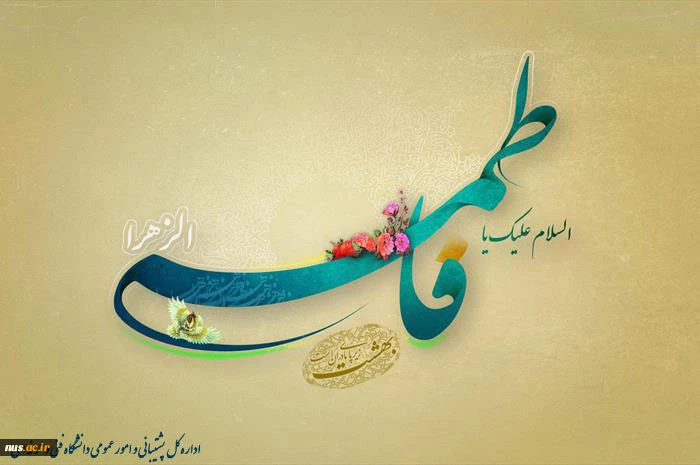 السلام علیک یا
فاطمه
الزهرا
بهشت زیر پای مادران است
اداره کل پشتیبانی و امور عمومی دانشگاه فنی
nus.ac.ir